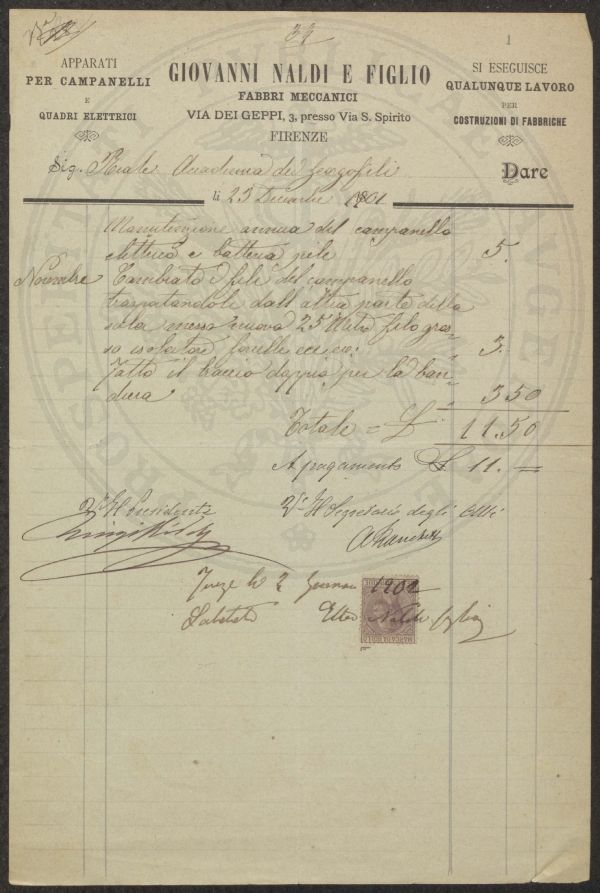 32
1
APPARATI
PER CAMPANELLI
E
QUADRI ELETTRICI
GIOVANNI NALDI E FIGLIO
FABBRI MECCANICI
VIA DEI GEPPI, 3, presso Via S. Spirito
FIRENZE
SI ESEGUISCE
QUALUNQUE LAVORO
PER
COSTRUZIONI DI FABBRICHE
Sig. Reale Accademia dei Georgofili Dare
li 23 Dicembre 1901
Manutenzione annua del campanello
elettrico e batteria pile 5.
Novembre Cambiato i fili del campanello
trasportandole dall'altra parte della
sala messo nuovo 25 Metri filo gros
so isolatori forcelle ecc ecc: 3.
Fatto il braccio doppio per la ban
diera 3 50
Totale = £ 11.50
A pagamento £ 11. =
Vº Il Presidente Vº Il Segretario degli Atti
Firenze li 2 Gennaio 1902
Saldato Naldi